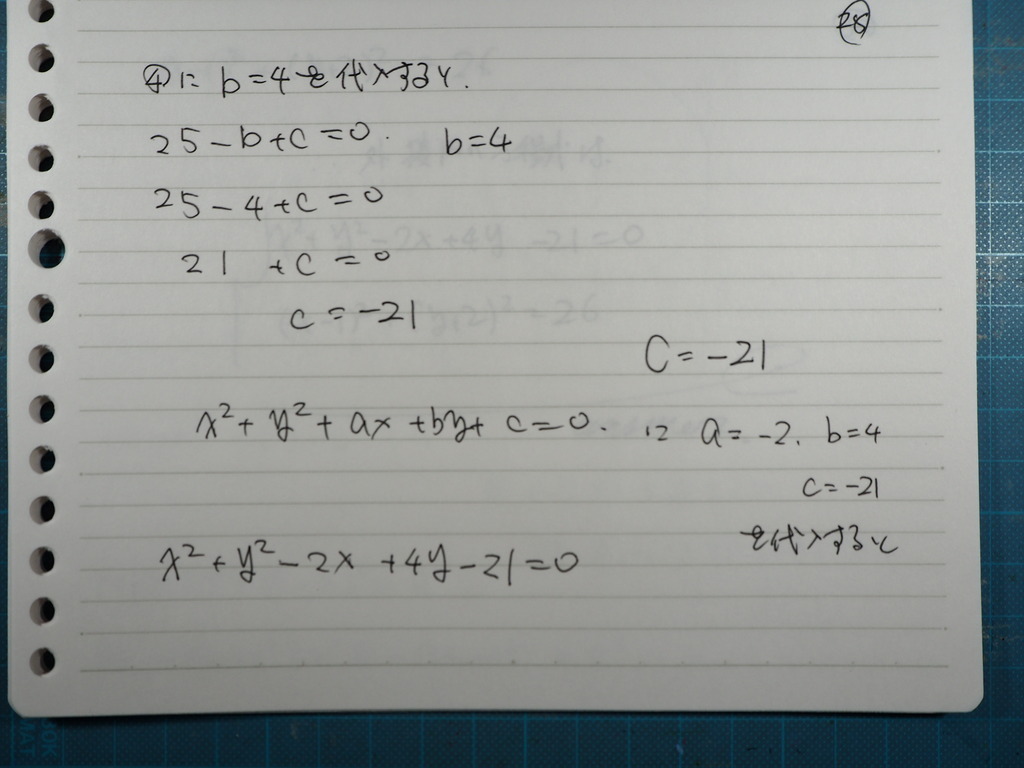 28
④に b=4を代入すると.
25-b+c=0. b=4
25-4+c=0
21 +c=0
c=-21
C=-21
x²+y²+ax+by+c=0. に a=-2. b=4
c=-21
を代入すると
x²+y²-2x+4y-21=0